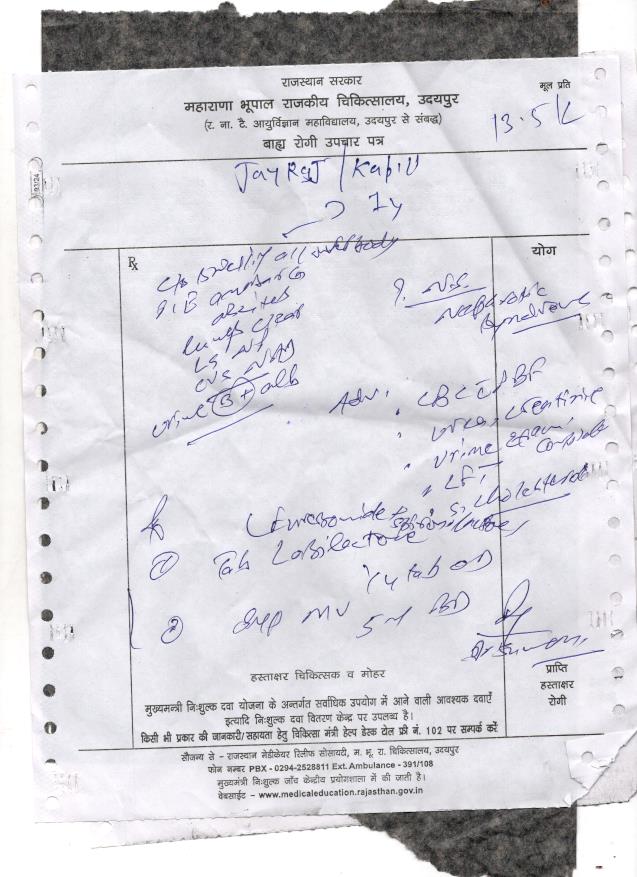 राजस्थान सरकार
महाराणा भूपाल राजकीय चिकित्सालय, उदयपुर
मूल प्रति
(र. ना. टै. आयुर्विज्ञान महाविद्यालय, उदयपुर से संबद्ध)
बाह्य रोगी उपचार पत्र
13.5
Jay Raj / Kapil
1y
Rx
योग
c/o swelling all
ascites
Lungs clear
CVS NAD
urine 3+ alb
? N.S.
Nephrotic
Syndrome
Adv.
CBC PBF
urea, creatinine
Urine Exam, complete
LFT
S. cholesterol
Tab Lasilactone
1/4 tab OD
② Syp MV 5 ml BD
हस्ताक्षर चिकित्सक व मोहर
प्राप्ति
हस्ताक्षर
रोगी
मुख्यमन्त्री निःशुल्क दवा योजना के अन्तर्गत सर्वाधिक उपयोग में आने वाली आवश्यक दवाएँ
इत्यादि निःशुल्क दवा वितरण केन्द्र पर उपलब्ध है।
किसी भी प्रकार की जानकारी/सहायता हेतु चिकित्सा मंत्री हेल्प डेस्क टोल फ्री नं. 102 पर सम्पर्क करें
सौजन्य से - राजस्थान मेडीकेयर रिलीफ सोसायटी, म. भू. रा. चिकित्सालय, उदयपुर
फोन नम्बर PBX - 0294-2528811 Ext. Ambulance - 391/108
मुख्यमन्त्री निःशुल्क जाँच केन्द्रीय प्रयोगशाला में की जाती है।
वेबसाईट - www.medicaleducation.rajasthan.gov.in